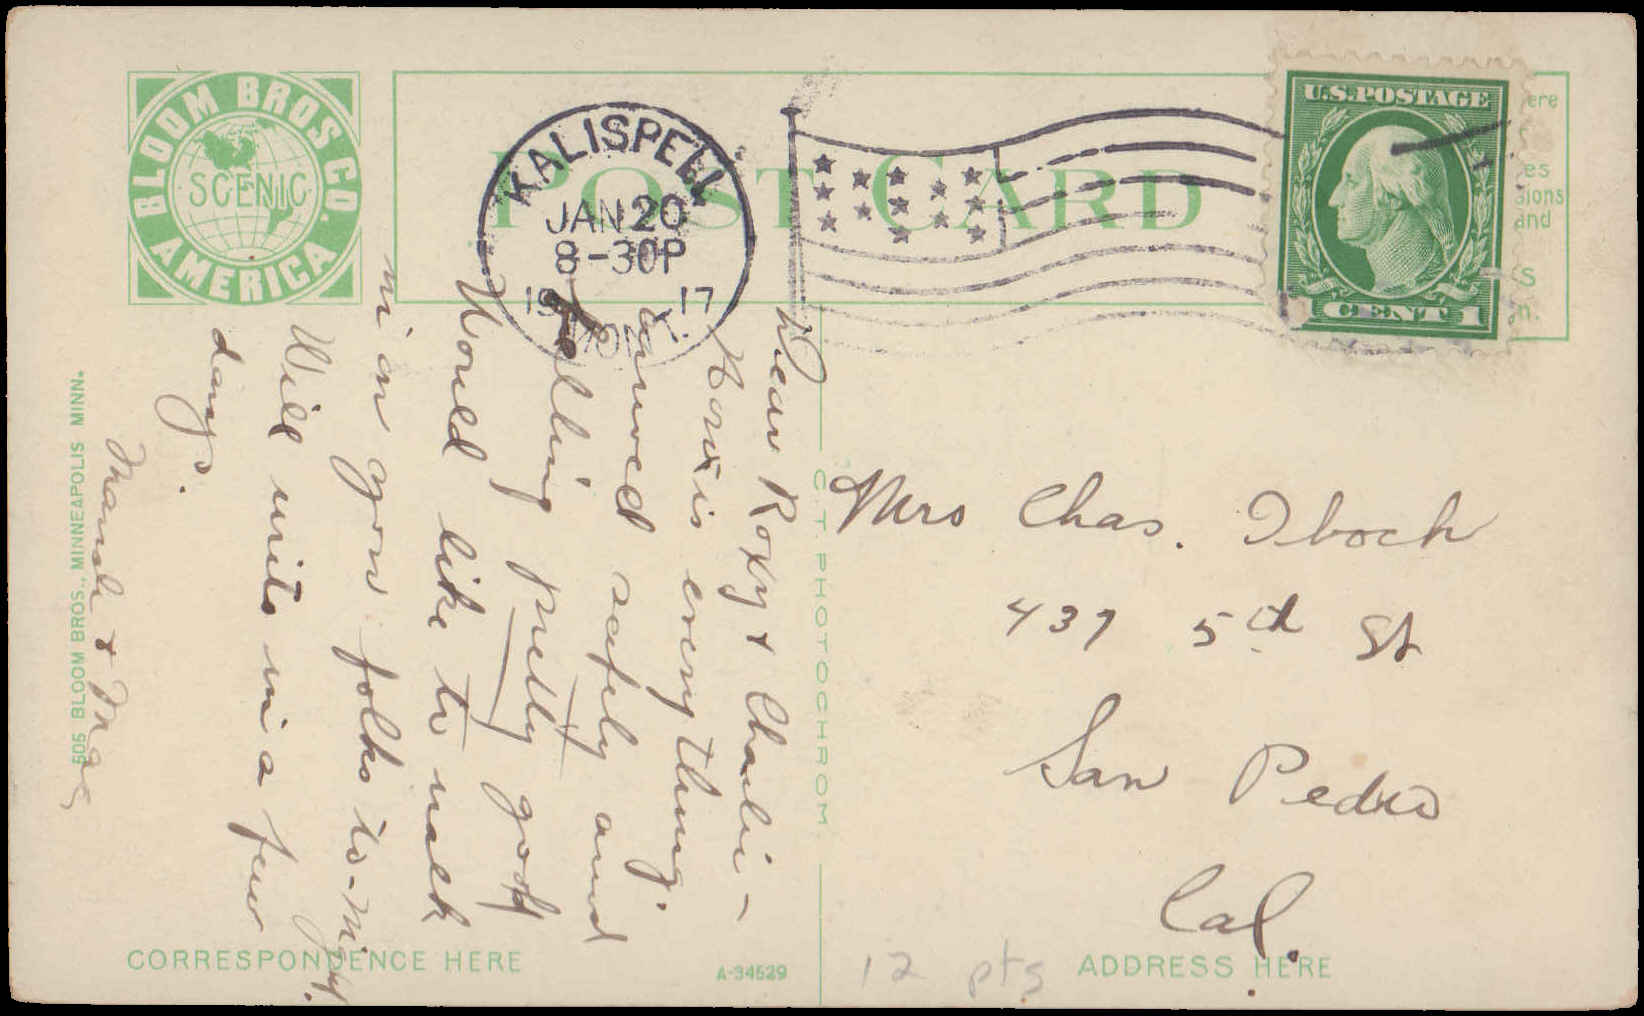 BLOOM BROS CO.
SCENIC
AMERICA
POST CARD
KALISPELL
JAN 20
8-30P
1917
MONT.
U.S. POSTAGE
1 CENT 1
ere
es
sions
and
S
n.
Dear Roxy & Charlie -
How is everything.
arrived safely and
feeling pretty good
Would like to walk
in on your folks to-night.
Will write in a few
days.
Mamie & Mac
505 BLOOM BROS., MINNEAPOLIS MINN.
C.T. PHOTOCHROM
Mrs Chas.
437 5th St
San Pedro
Cal.
CORRESPONDENCE HERE
A-34529
12 pts
ADDRESS HERE